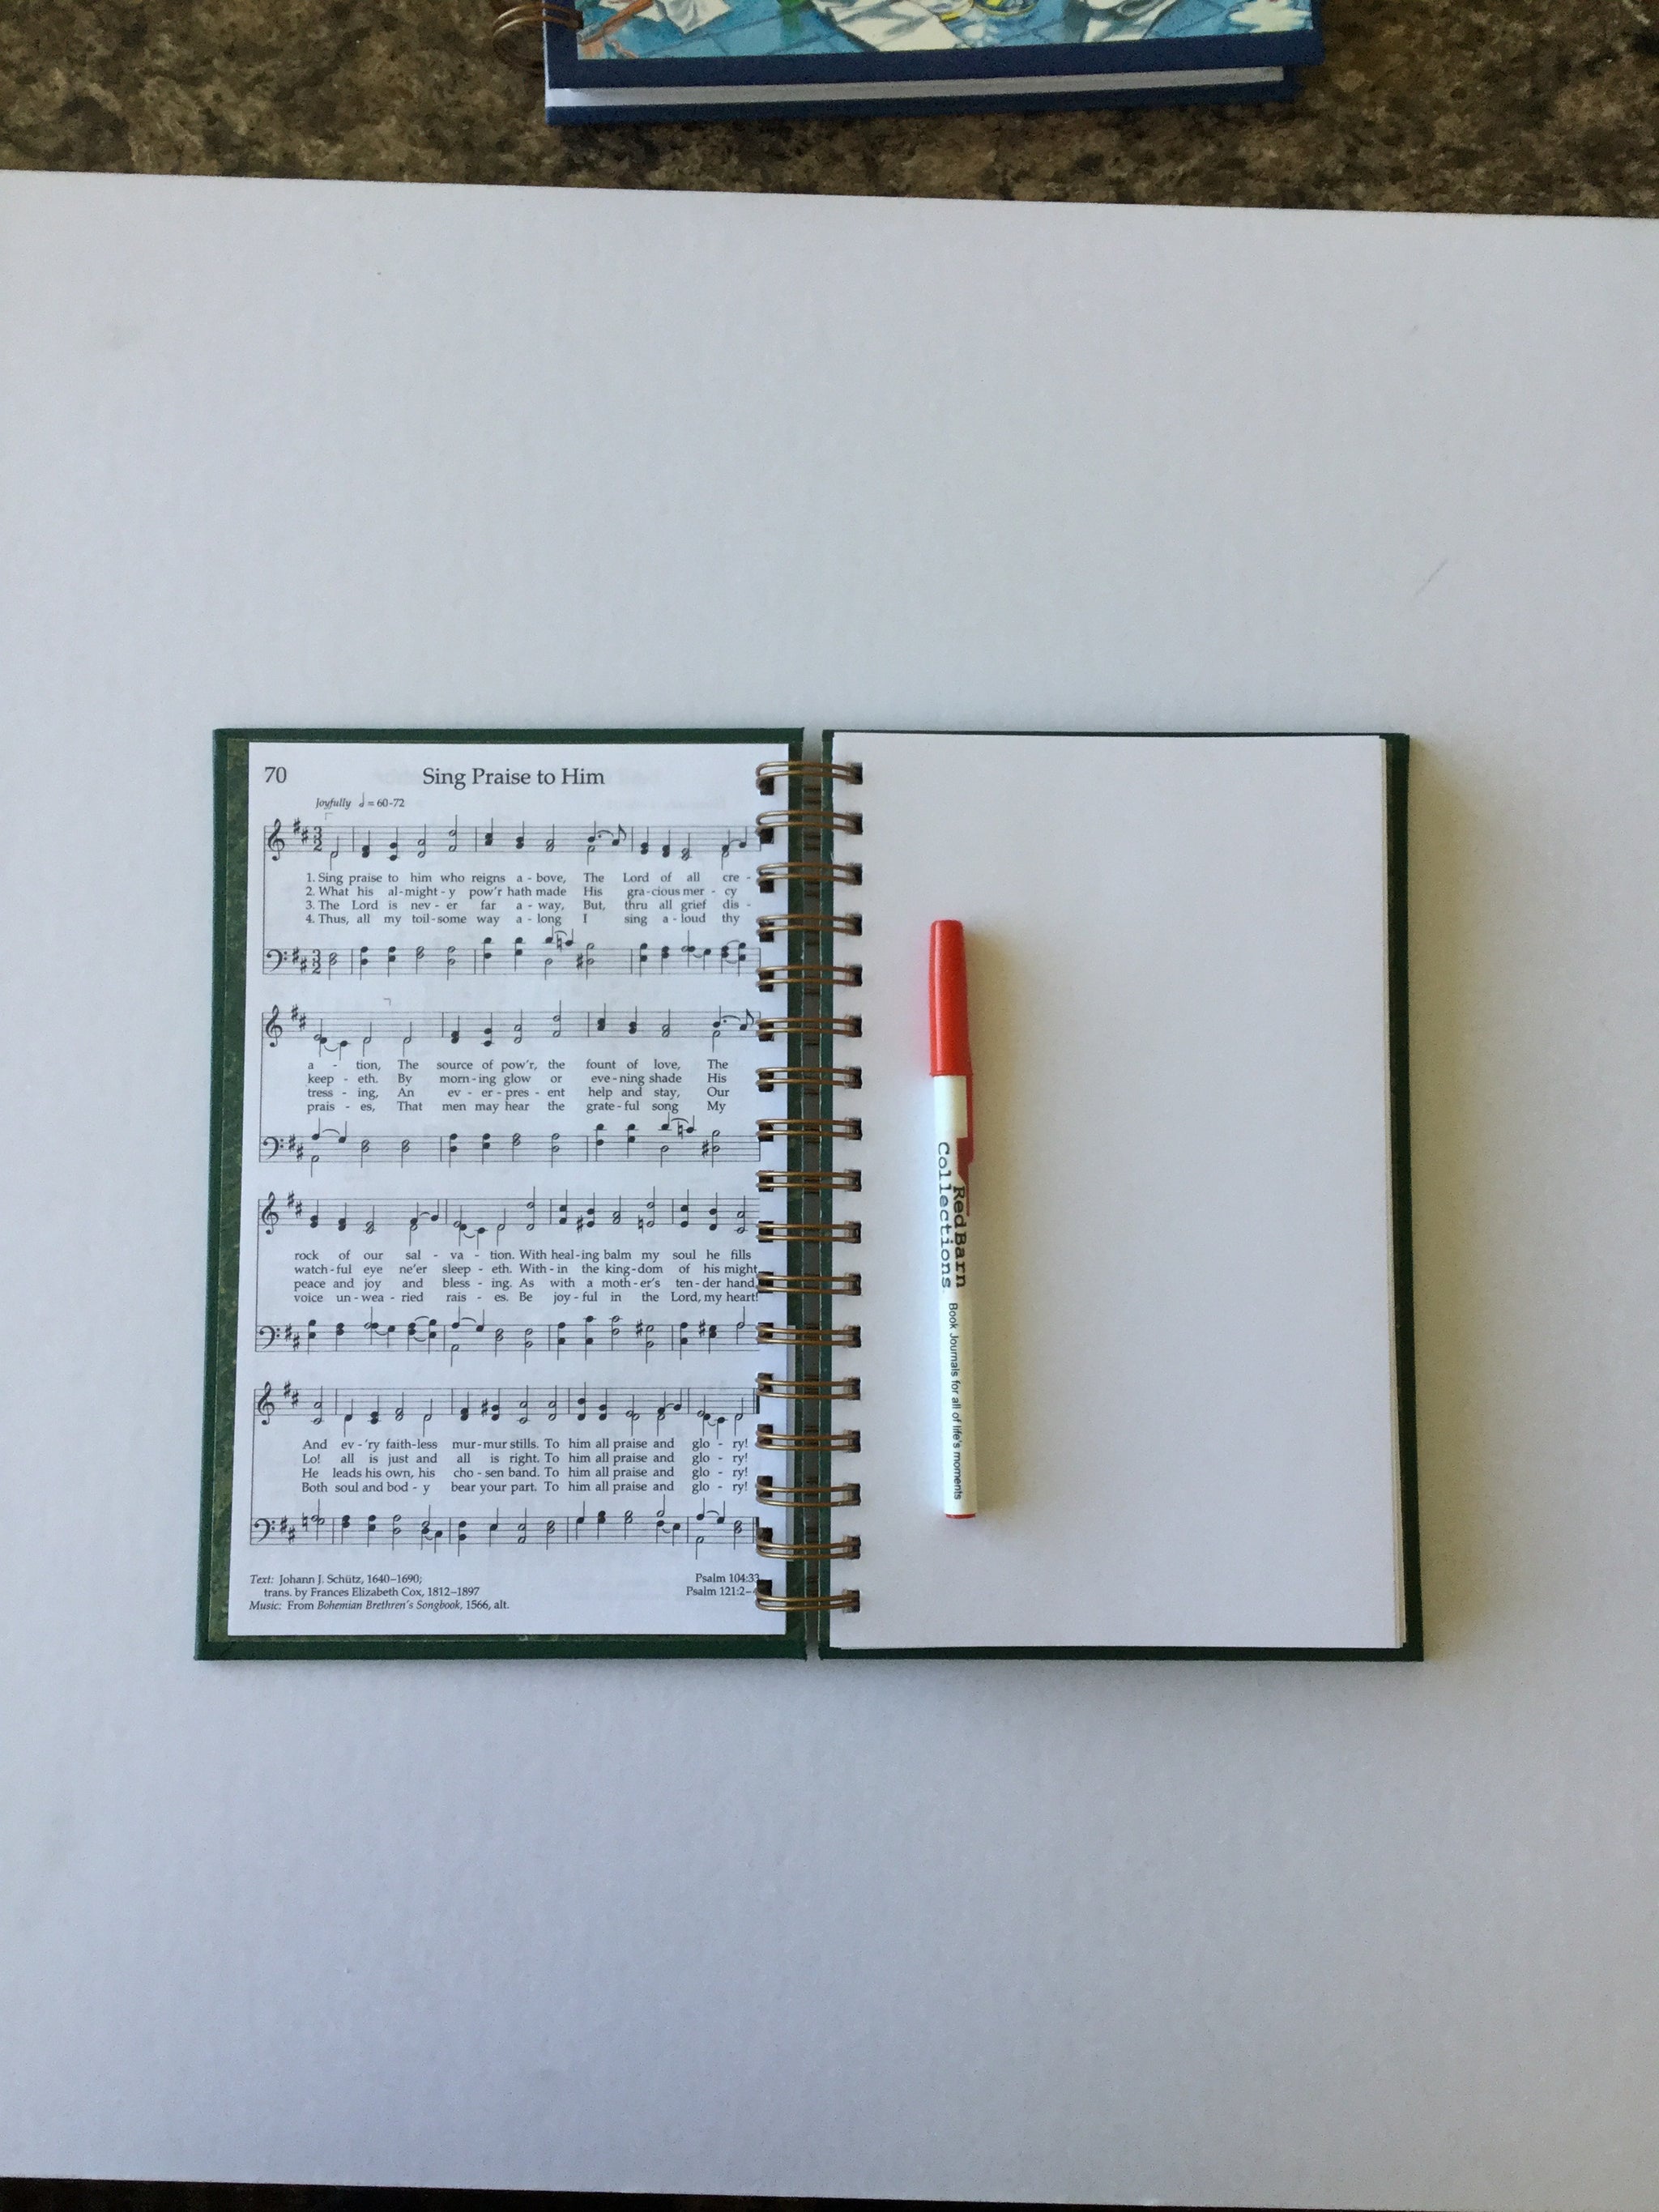 70
Sing Praise to Him
Joyfully ♩ = 60-72
1. Sing praise to him who reigns a - bove, The Lord of all cre -
2. What his al - might - y pow'r hath made His gra - cious mer - cy
3. The Lord is nev - er far a - way, But, thru all grief dis -
4. Thus, all my toil - some way a - long I sing a - loud thy
a - tion, The source of pow'r, the fount of love, The
keep - eth. By morn - ing glow or eve - ning shade His
tress - ing, An ev - er - pres - ent help and stay, Our
prais - es, That men may hear the grate - ful song My
rock of our sal - va - tion. With heal - ing balm my soul he fills
watch - ful eye ne'er sleep - eth. With - in the king - dom of his might,
peace and joy and bless - ing. As with a moth - er's ten - der hand,
voice un - wea - ried rais - es. Be joy - ful in the Lord, my heart!
And ev - 'ry faith - less mur - mur stills. To him all praise and glo - ry!
Lo! all is just and all is right. To him all praise and glo - ry!
He leads his own, his cho - sen band. To him all praise and glo - ry!
Both soul and bod - y bear your part. To him all praise and glo - ry!
Text: Johann J. Schütz, 1640–1690;
trans. by Frances Elizabeth Cox, 1812–1897
Music: From Bohemian Brethren's Songbook, 1566, alt.
Psalm 104:33
Psalm 121:2–
Red Barn
Collections
Book Journals for all of life's moments